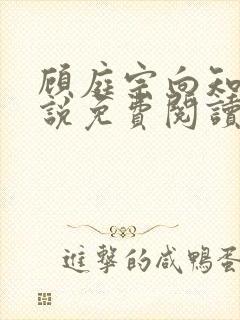 顾庭宗向知
說免費閱讀
進擊的咸鴨蛋